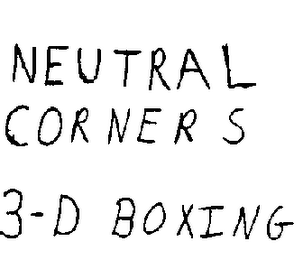 NEUTRAL
CORNERS
3-D BOXING